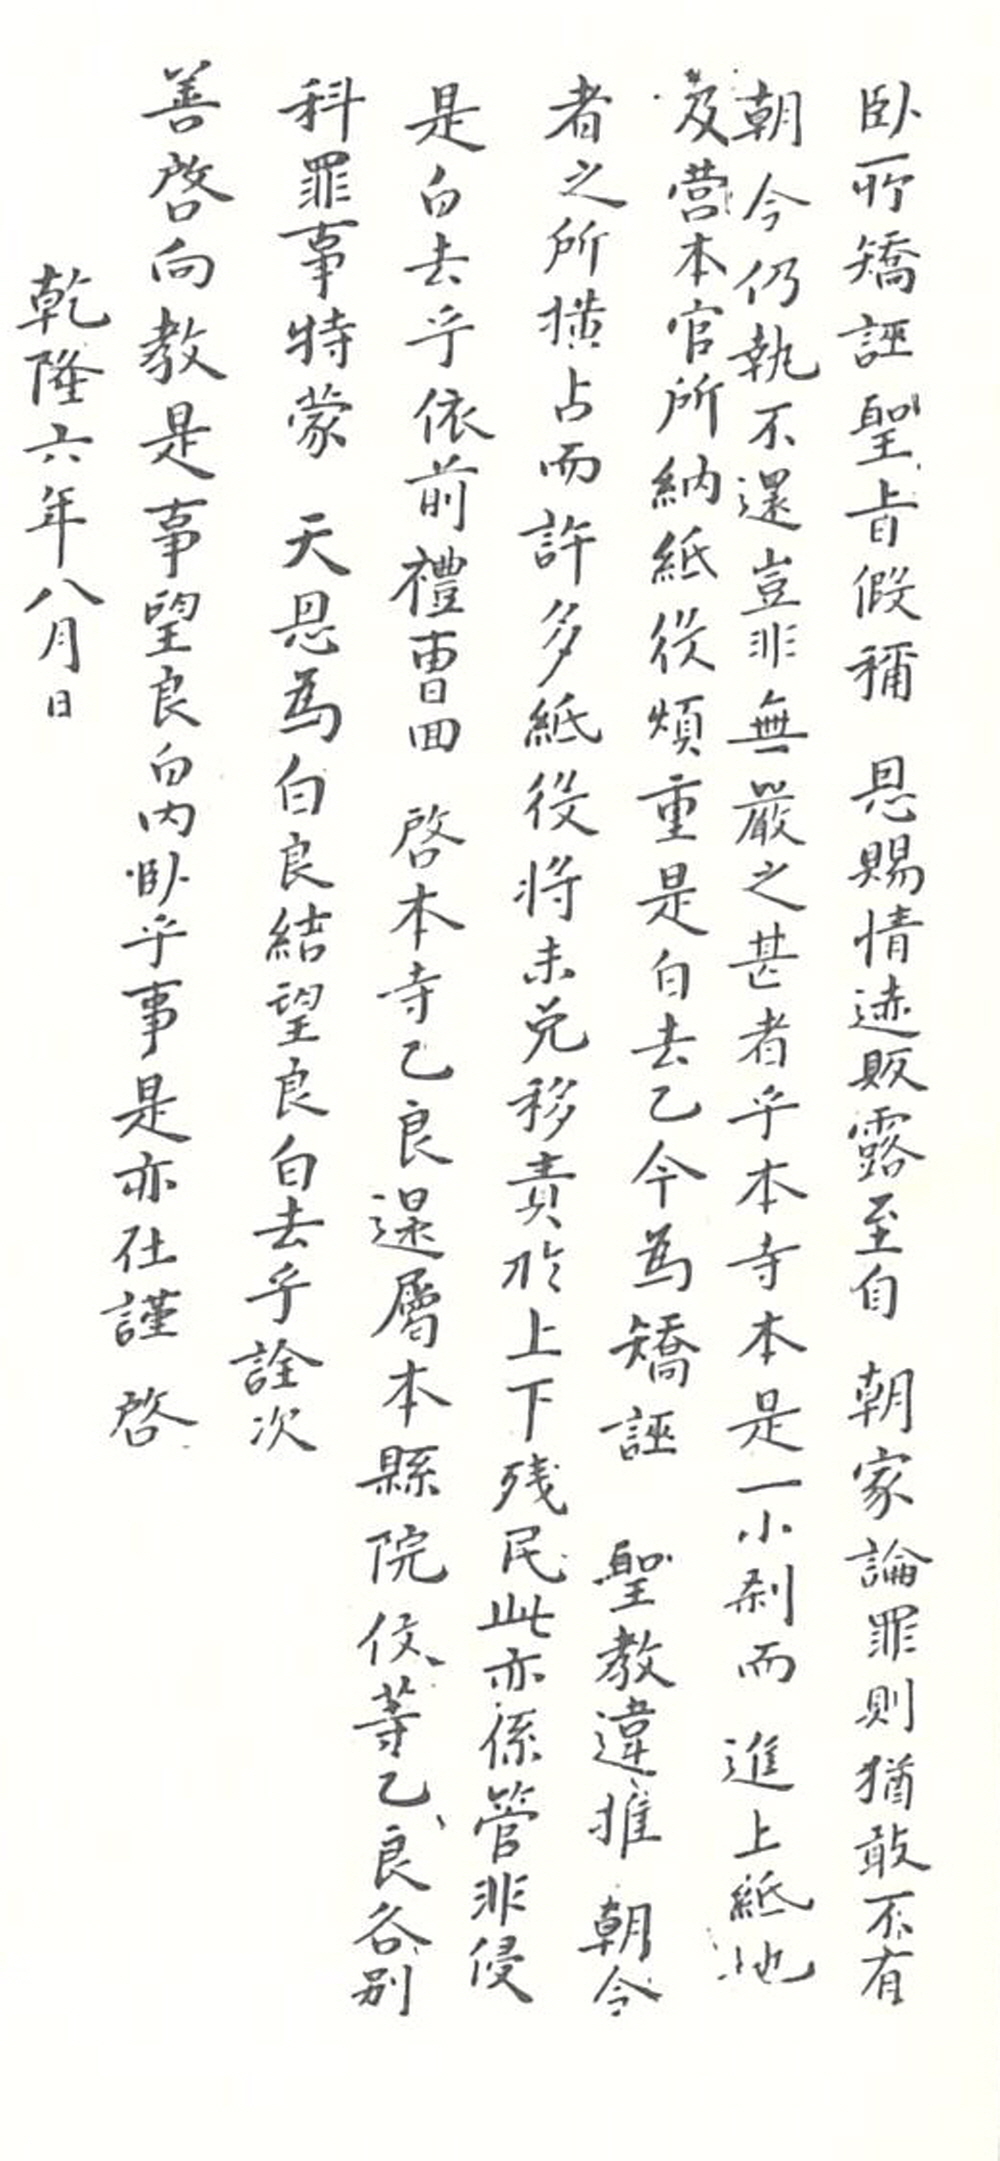 臥所矯誣聖旨假稱 恩賜情迹敗露至自 朝家論罪則猶敢不有
朝令仍執不還豈非無嚴之甚者乎本寺本是一小刹而 進上紙地
及營本官所納紙役煩重是白去乙今為矯誣 聖教違推 朝令
者之所橫占而許多紙役將未免移責於上下残民此亦係管非侵
是白去乎依前禮曹回 啓本寺乙良還属本縣院 等乙良各別
科罪事特蒙 天恩為白良結望良白去乎詮次
善啓向教是事望良白内臥乎事是亦在謹 啓
乾隆六年八月日